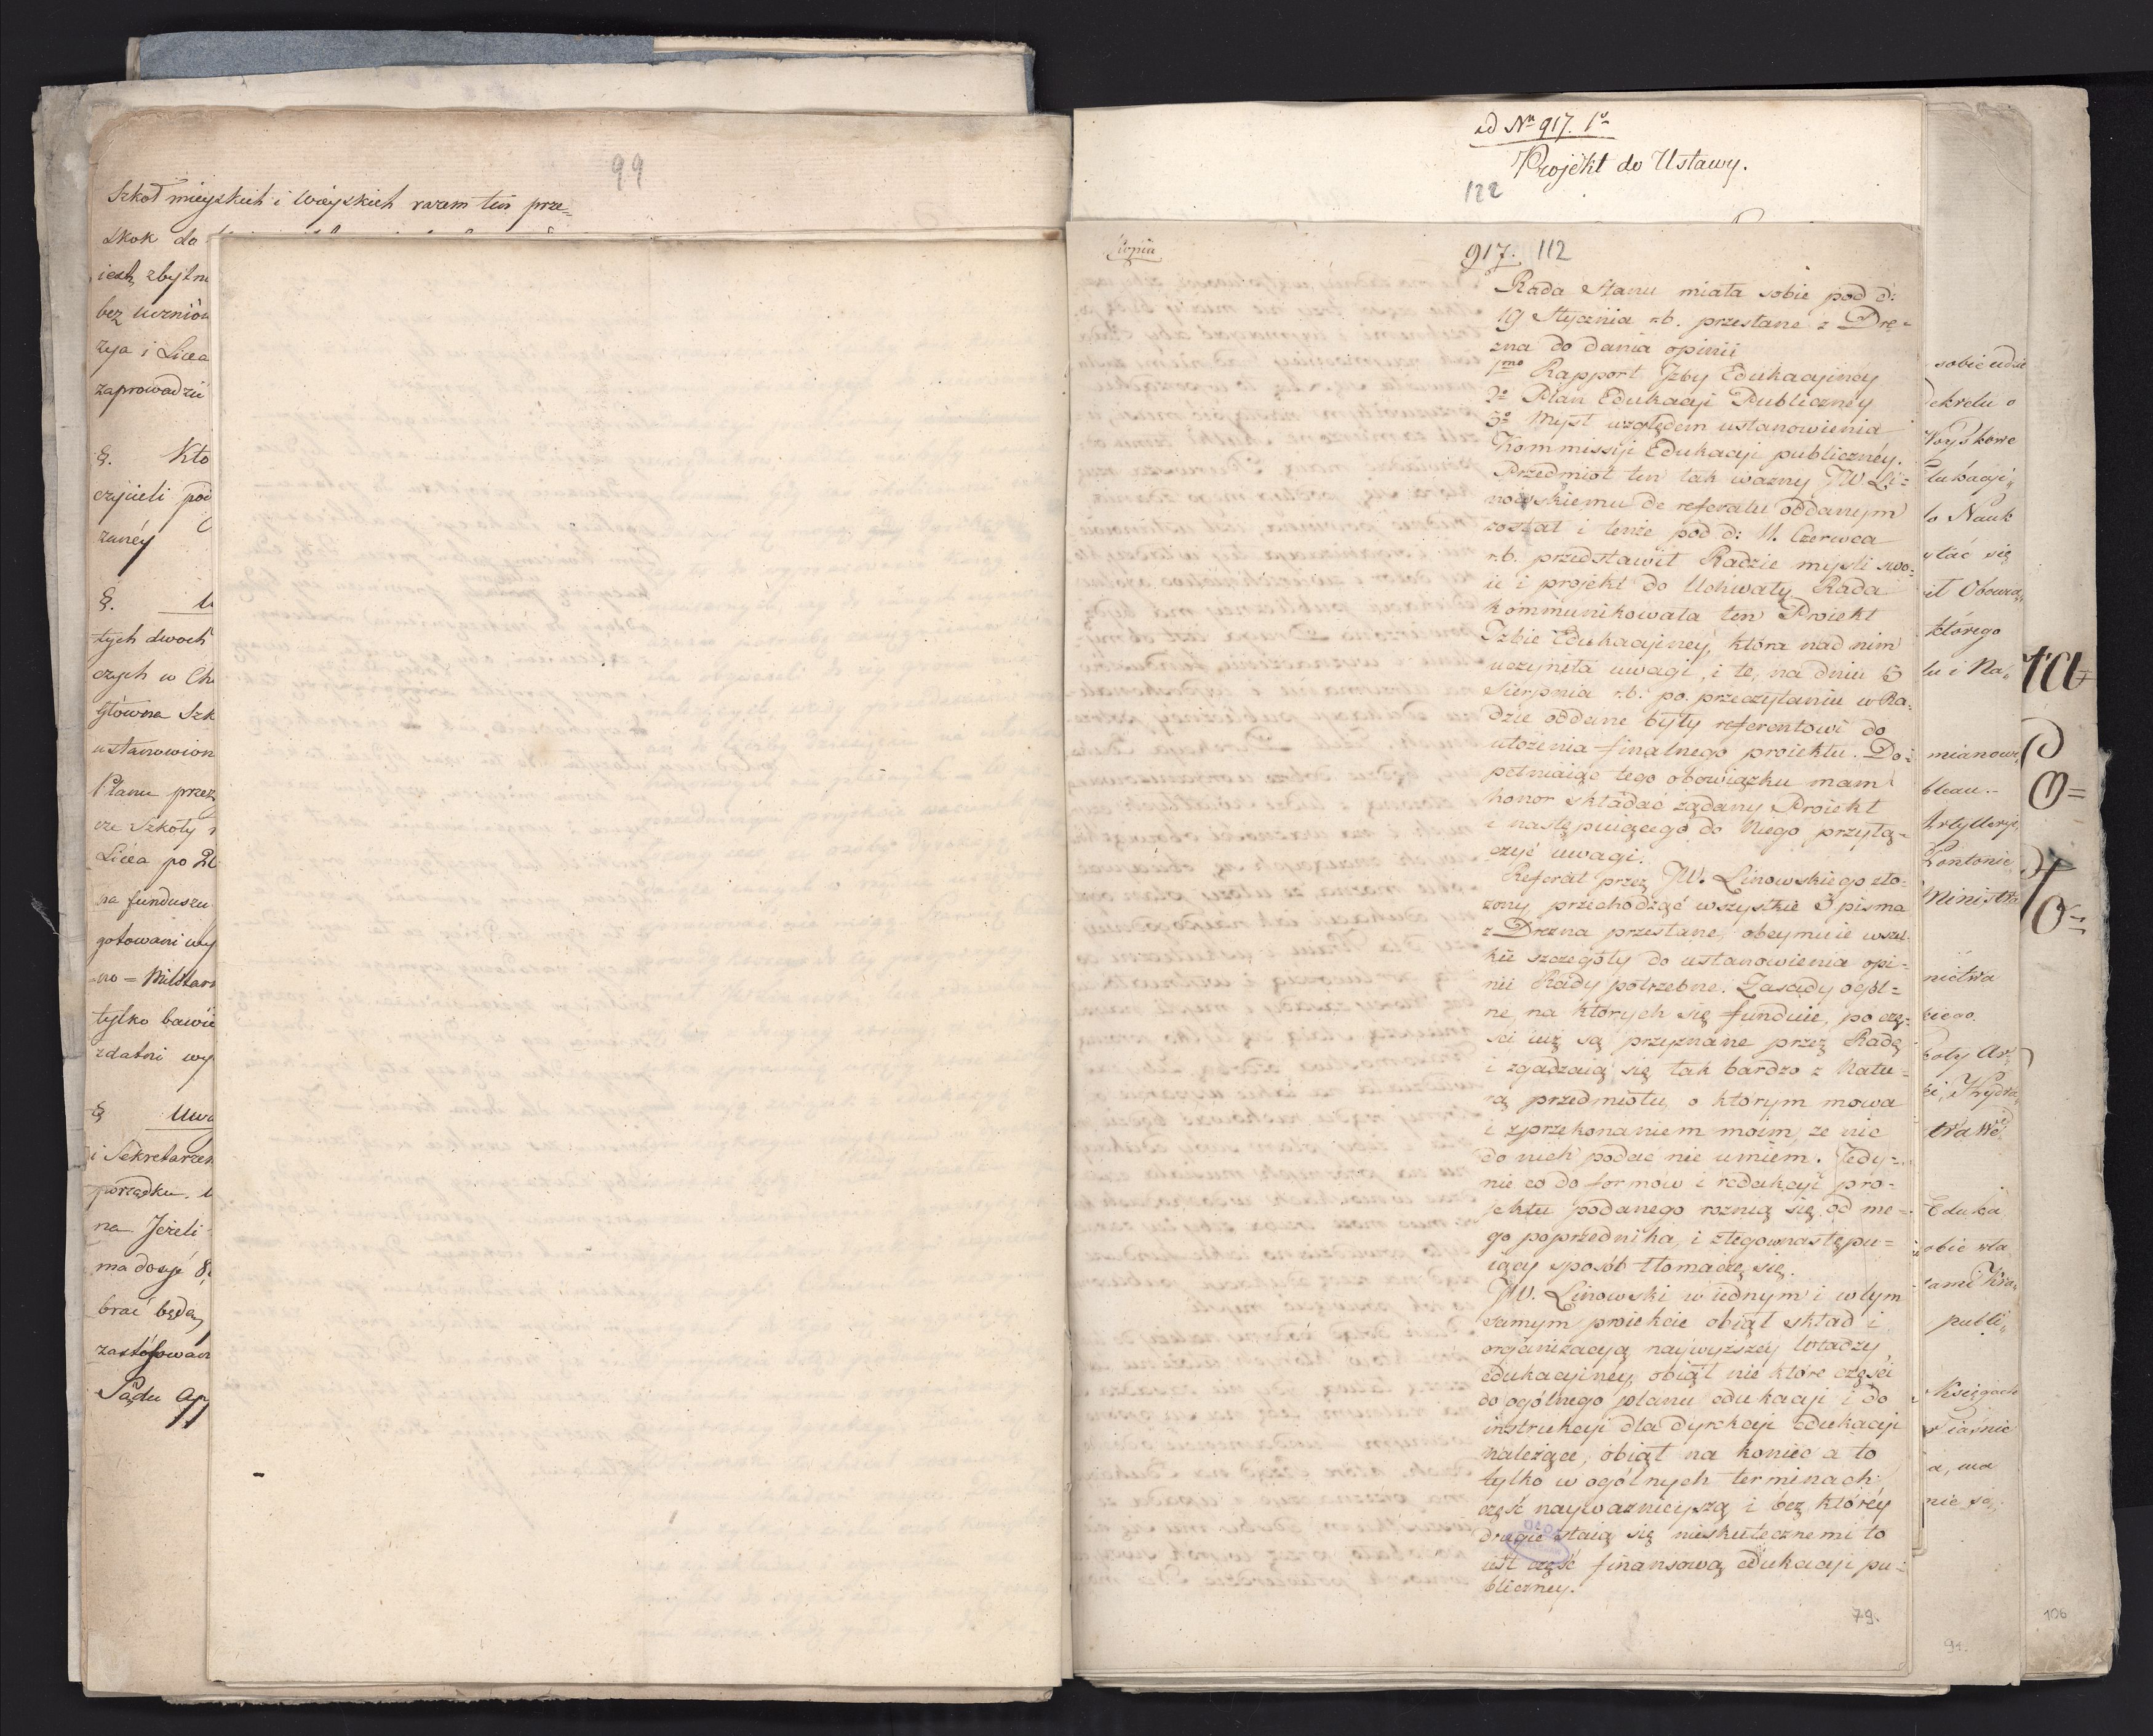 99
Szkoł mieyskich i wieyskich razem ten prze=
skok do
iest zbytn
bez uczniów
zya i Licea
zaprowadzić
§. Kto
czycieli pod
zaney
§.
tych dwoch
czych w Ch
główna Szk
ustanowion
Planu przez
cze Szkoły
Licea po
na funduszu
gotowani wy
no = Militarn
tylko bawić
zdatni wy
§ Uwa
i Sekretarzem
porządku
na Jeżeli
ma dosyć
brać będą
zastósowan
Sądu Ap
ad Nr 917. 1o
Projekt do Ustawy.
122
Kopia
917. 112
Rada Stanu miała sobie pod d:
19 Stycznia r.b. przesłane z Dre=
zna do dania opinii
1mo Rapport Izby Edukacyiney
2o Plan Edukacji Publiczney
3o Myśl względem ustanowienia
Kommissji Edukacji publiczney.
Przedmiot ten tak ważny JW Li=
nowskiemu do referatu oddanym
został i tenże pod d: 11. Czerwca
r.b. przedstawił Radzie myśli swo=
ie i projekt do Uchwały Rada
kommunikowała ten Proiekt
Izbie Edukacyiney, która nad nim
uczyniła uwagi, i te, na dniu 5
Sierpnia r.b. po przeczytaniu w Ra=
dzie oddane były referentowi do
ułożenia finalnego proiektu. Do=
pełniaiąc tego obowiązku mam
honor składać żądany Proiekt
i następuiącego do Niego przyłą=
czyć uwagi.
Referat przez JW. Linowskiego zło=
żony przechodząc wszystkie 3 pisma
z Drezna przesłane, obeymuie wszel=
kie szczegóły do ustanowienia opi=
nii Rady potrzebne. Zasady ogól=
ne, na których się funduie, po czę=
ści iuż są przyznane przez Radę
i zgadzaią się tak bardzo z Natu=
rą przedmiotu o którym mowa
i z przekonaniem moim, że nic
do nich podać nie umiem. Jedy=
nie co do formow i redakcyi pro=
jektu podanego roznią się od me=
go poprzednika, i z tego w następu=
iący sposób tłomaczę się.
JW. Linowski w iednym i w tym
samym proiekcie obiął skład i
organizacyą naywyższey władzy
edukacyiney, obiął nie które części
do ogólnego planu edukacji i do
instrukcji dla dyrekcji edukacji
należące, obiął na koniec a to
tylko w ogólnych terminach
część nayważnieyszą i bez którey
drugie staią się nieskutecznemi to
iest część finansową edukacji pu=
bliczney.
79.
sobie udzie
Dekretu o
Woyskowe
Edukacji
do Nauk
stać się
ił Obowią
którego
lu i Na
mianow
bleau.
Artyllerye
Pontonie
Ministra
nictwa
kiego.
koły Ar
ki, Hydra
Eduka
obie wła
tami Kra
publi
Księgach
w iaśnie
a, ma
nie są
91.
106